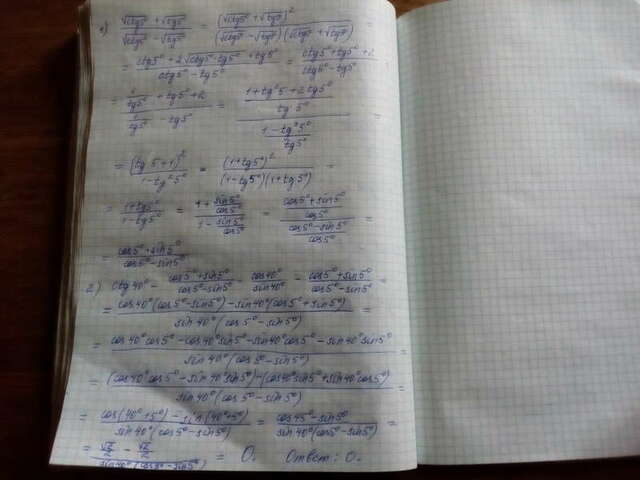 1) (√ctg5° + √tg5°)/(√ctg5° − √tg5°) = (√ctg5° + √tg5°)²/((√ctg5° − √tg5°)(√ctg5° + √tg5°)) =
= (ctg5° + 2√ctg5°·tg5° + tg5°)/(ctg5° − tg5°) = (ctg5° + tg5° + 2)/(ctg5° − tg5°) =
= (1/tg5° + tg5° + 2)/(1/tg5° − tg5°) = ((1 + tg²5 + 2tg5°)/tg5°)/((1 − tg²5°)/tg5°) =
= (tg5° + 1)²/(1 − tg²5°) = (1 + tg5°)²/((1 − tg5°)(1 + tg5°)) =
= (1 + tg5°)/(1 − tg5°) = (1 + sin5°/cos5°)/(1 − sin5°/cos5°) = ((cos5° + sin5°)/cos5°)/((cos5° − sin5°)/cos5°) =
= (cos5° + sin5°)/(cos5° − sin5°)
2) ctg40° − (cos5° + sin5°)/(cos5° − sin5°) = cos40°/sin40° − (cos5° + sin5°)/(cos5° − sin5°) =
= (cos40°(cos5° − sin5°) − sin40°(cos5° + sin5°))/(sin40°(cos5° − sin5°)) =
= (cos40°cos5° − cos40°sin5° − sin40°cos5° − sin40°sin5°)/(sin40°(cos5° − sin5°)) =
= ((cos40°cos5° − sin40°sin5°) − (cos40°sin5° + sin40°cos5°))/(sin40°(cos5° − sin5°)) =
= (cos(40° + 5°) − sin(40° + 5°))/(sin40°(cos5° − sin5°)) = (cos45° − sin45°)/(sin40°(cos5° − sin5°)) =
= (√2/2 − √2/2)/(sin40°(cos5° − sin5°)) = 0. Ответ: 0.